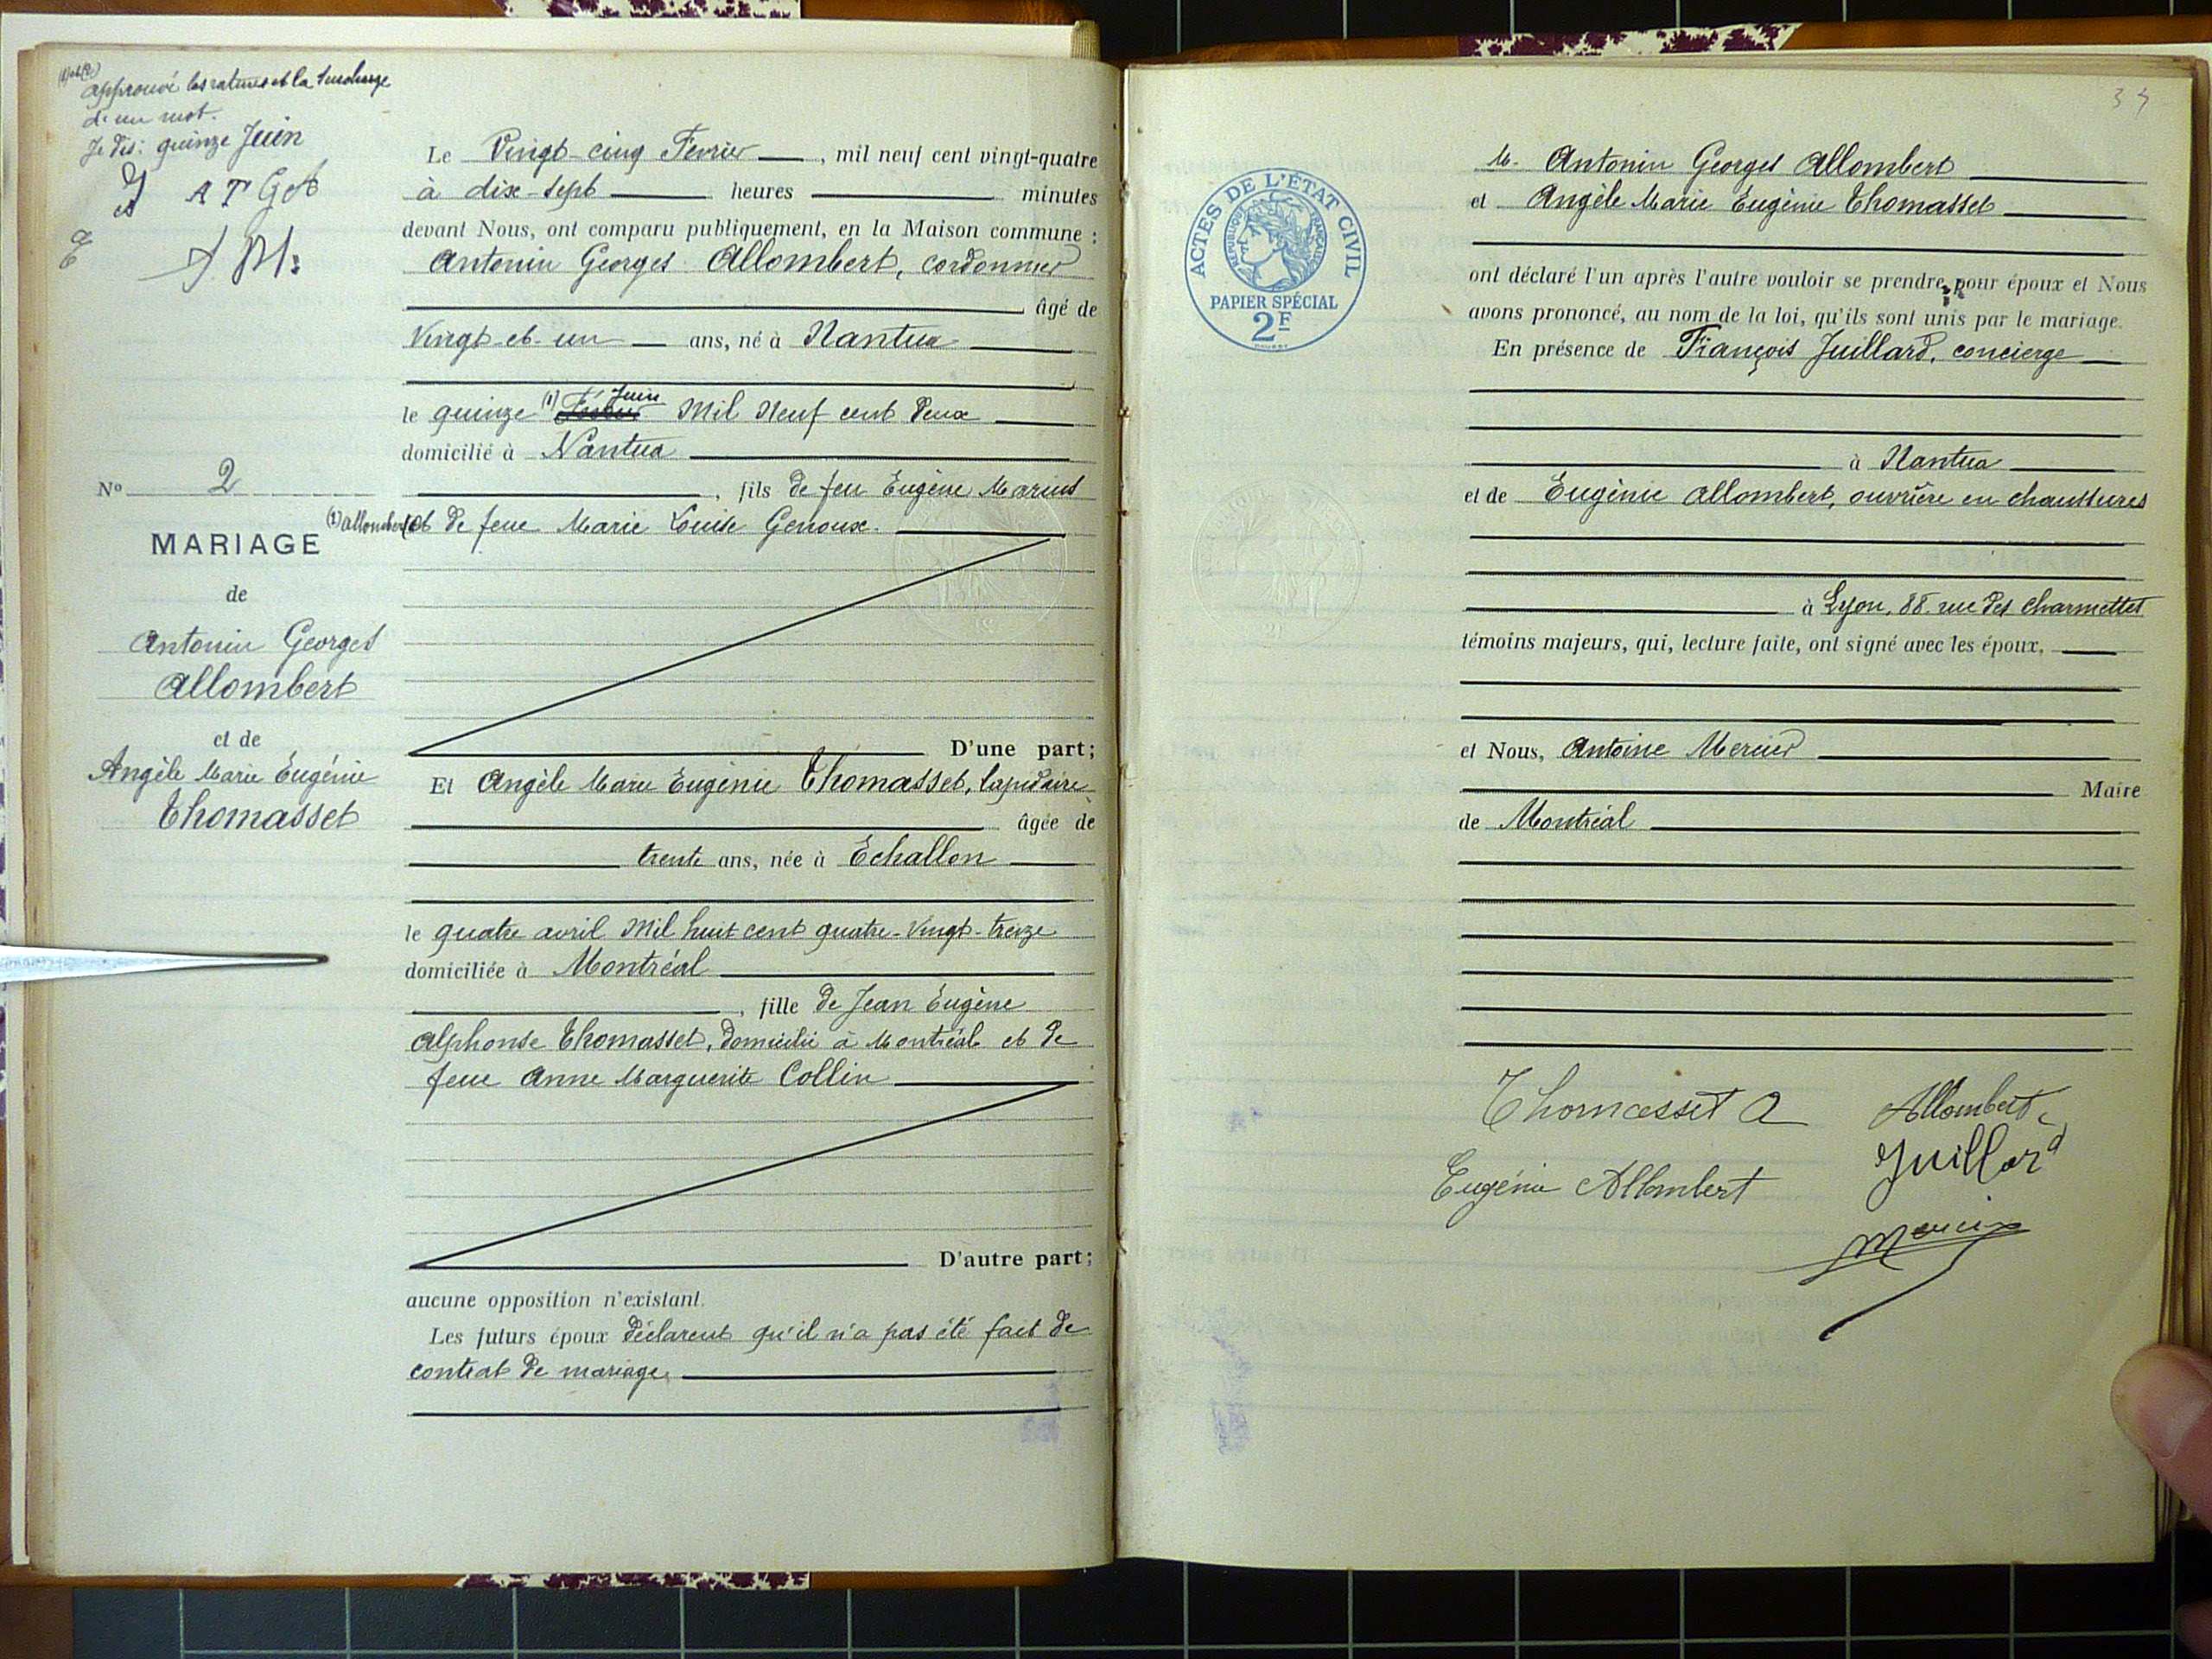 (1) et (2)
approuvé les ratures et la surcharge
d'un mot.
Je dis: quinze Juin
A T G A
A M:
N° 2
MARIAGE
de
Antonin Georges
Allombert
et de
Angèle Marie Eugénie
Thomasset
Le Vingt-cinq Février, mil neuf cent vingt-quatre
à dix-sept heures minutes
devant Nous, ont comparu publiquement, en la Maison commune :
Antonin Georges Allombert, cordonnier
âgé de
Vingt-et-un ans, né à Nantua
le quinze (1) Juin Mil Neuf cent deux
domicilié à Nantua
, fils de feu Eugène Marius
(2) allombert et de feue Marie Louise Genoux.
D'une part;
Et Angèle Marie Eugénie Thomasset, lapidaire
âgée de
trente ans, née à Echallon
le quatre avril Mil huit cent quatre-Vingt-treize
domiciliée à Montréal
, fille de Jean Eugène
Alphonse Thomasset, domicilié à Montréal et de
feue Anne Marguerite Collin
D'autre part;
aucune opposition n'existant.
Les futurs époux déclarent qu'il n'a pas été fait de
contrat de mariage.
34
ACTES DE L'ÉTAT CIVIL
RÉPUBLIQUE FRANÇAISE
PAPIER SPÉCIAL
2F
M. Antonin Georges Allombert
et Angèle Marie Eugénie Thomasset
ont déclaré l'un après l'autre vouloir se prendre pour époux et Nous
avons prononcé, au nom de la loi, qu'ils sont unis par le mariage.
En présence de François Juillard, concierge
à Nantua
et de Eugénie Allombert, ouvrière en chaussures
à Lyon, 88. rue des Charmettes
témoins majeurs, qui, lecture faite, ont signé avec les époux,
et Nous, Antoine Mercier
Maire
de Montréal
Thomasset A Allombert
Juillard
Eugénie Allombert
Mercier